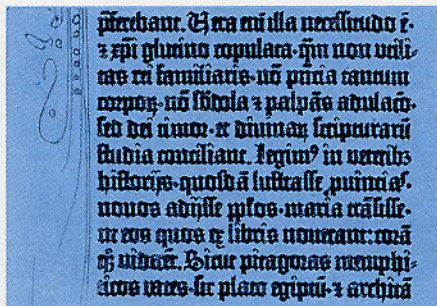 p̄ferebant. Vera eni illa necessitudo ē·
⁊ xp̄i glutino copulata· qm̄ non utili-
tas rei familiaris· nō pn̄cia tantum
corpoꝝ· nō sb̄dola ⁊ palpās adulacō·
sed dei timor· et diuinaꝝ scripturarū
studia conciliant. Legimꝰ in veteribꝫ
historijs· quosdā lustrasse ꝓuīcias·
nouos adijsse pplos· maria trāsisse·
ut eos quos ex libris nouerant: corā
qꝫ viderēt. Sicut pitagoras memphi-
ticos vates· sic plato egiptū ⁊ architā